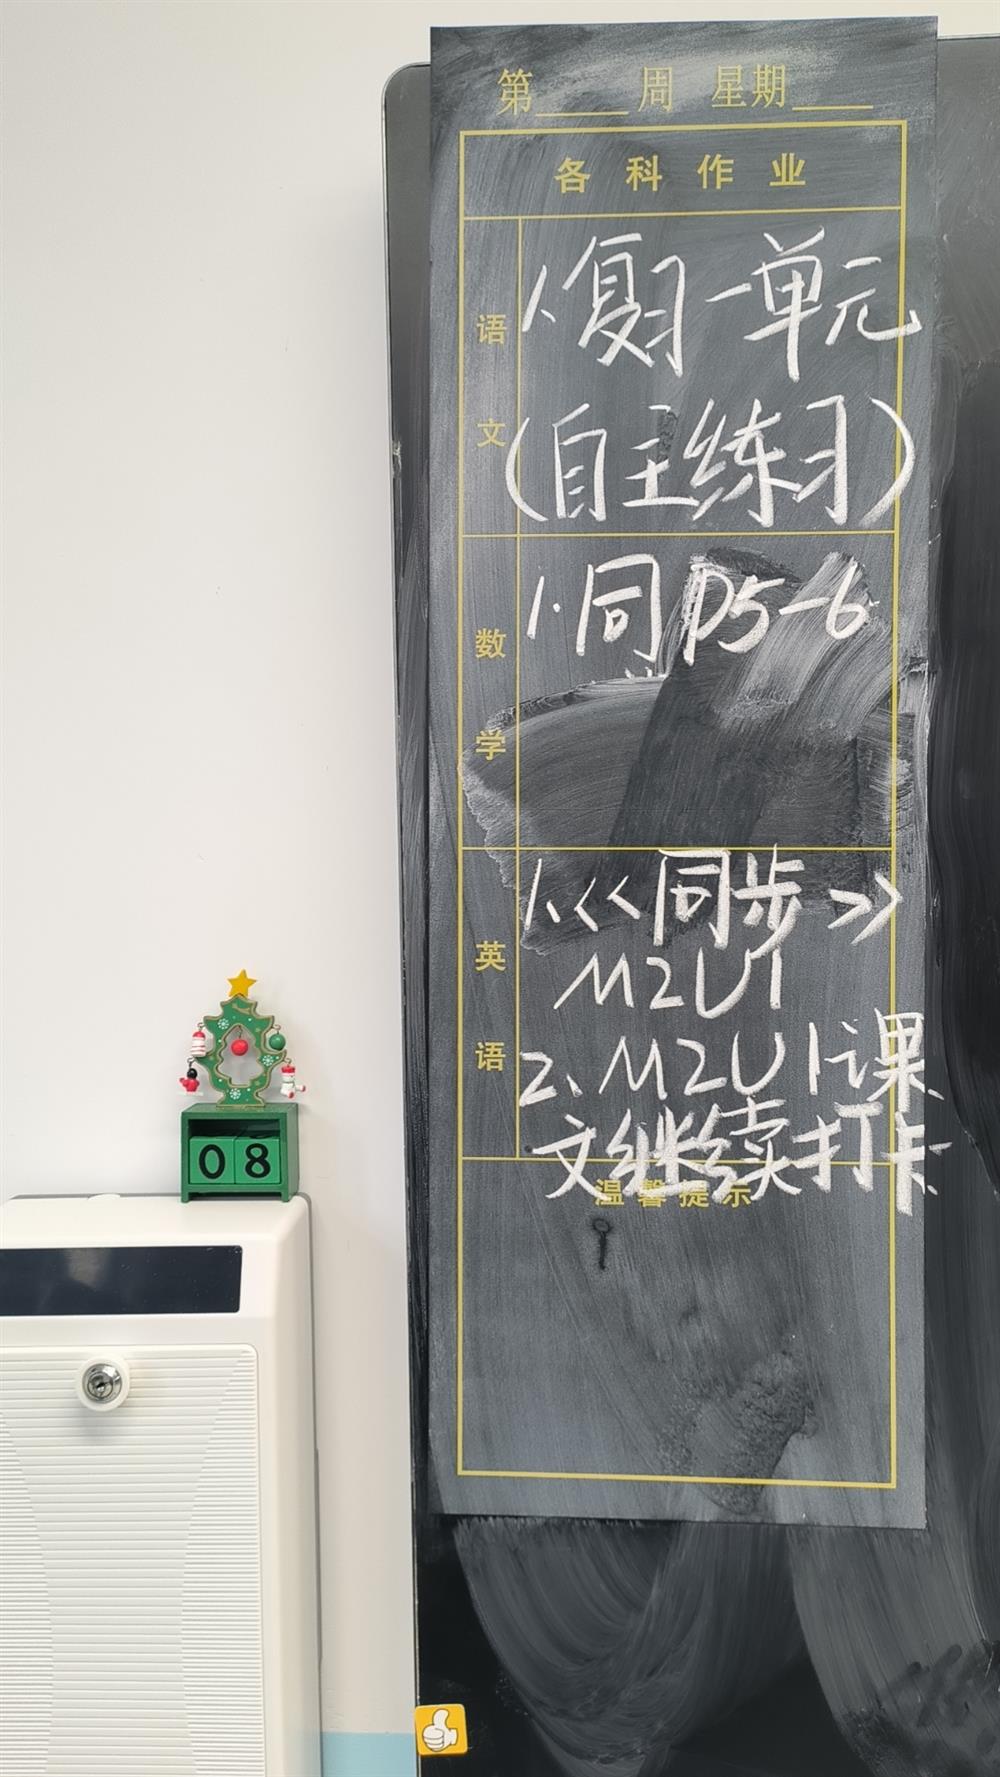 第____周 星期____
各科作业
语文
1、复习一单元
(自主练习)
数学
1.同P5-6
英语
1、<<同步>>
M2U1
2、M2U1课
文继续打卡
温馨提示
08